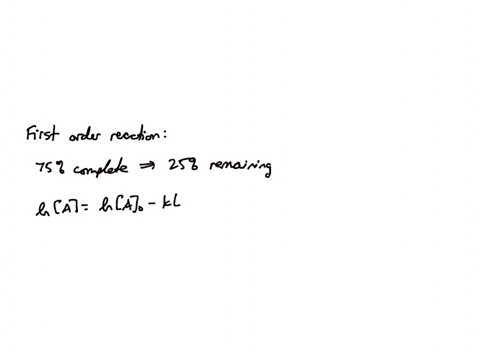 First order reaction:
75% complete ⇒ 25% remaining
ln[A] = ln[A]₀ - kt